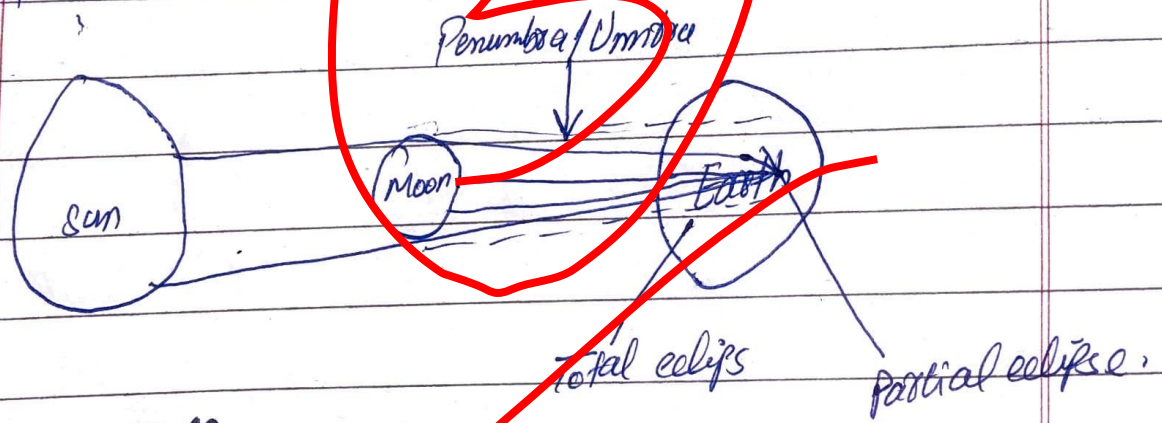 Penumbra/Ummbra
Moon
Earth
Sun
Total eclips
Partial eclipse.